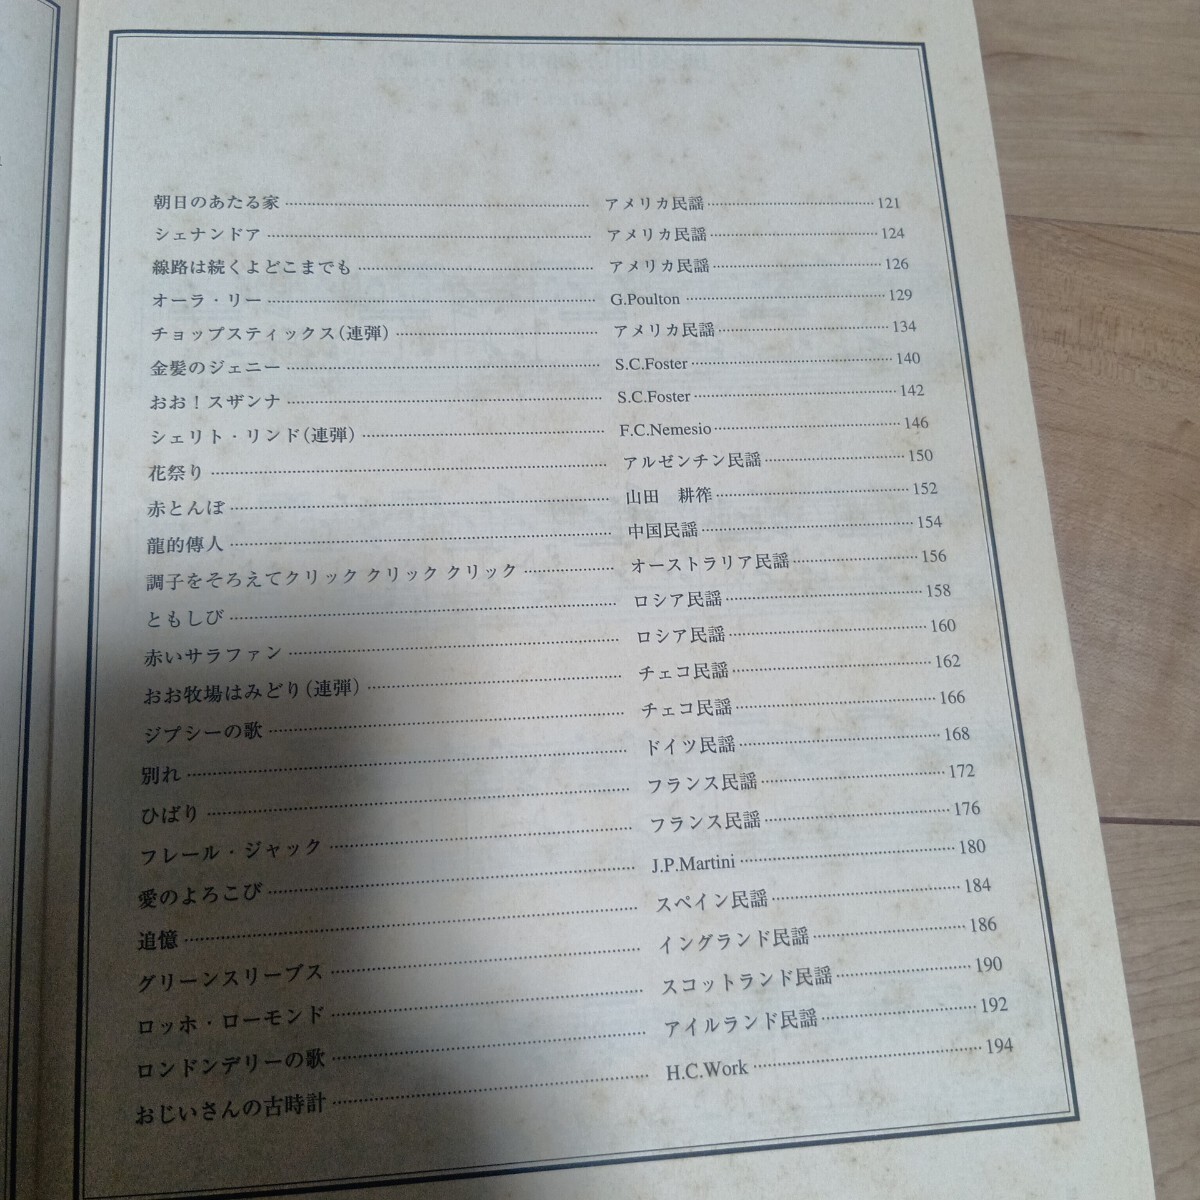 朝日のあたる家 アメリカ民謡 121
シェナンドア アメリカ民謡 124
線路は続くよどこまでも アメリカ民謡 126
オーラ・リー G.Poulton 129
チョップスティックス(連弾) アメリカ民謡 134
金髪のジェニー S.C.Foster 140
おお!スザンナ S.C.Foster 142
シェリト・リンド(連弾) F.C.Nemesio 146
花祭り アルゼンチン民謡 150
赤とんぼ 山田 耕筰 152
龍的傳人 中国民謡 154
調子をそろえてクリック クリック クリック オーストラリア民謡 156
ともしび ロシア民謡 158
赤いサラファン ロシア民謡 160
おお牧場はみどり(連弾) チェコ民謡 162
ジプシーの歌 チェコ民謡 166
別れ ドイツ民謡 168
ひばり フランス民謡 172
フレール・ジャック フランス民謡 176
愛のよろこび J.P.Martini 180
追憶 スペイン民謡 184
グリーンスリーブス イングランド民謡 186
ロッホ・ローモンド スコットランド民謡 190
ロンドンデリーの歌 アイルランド民謡 192
おじいさんの古時計 H.C.Work 194